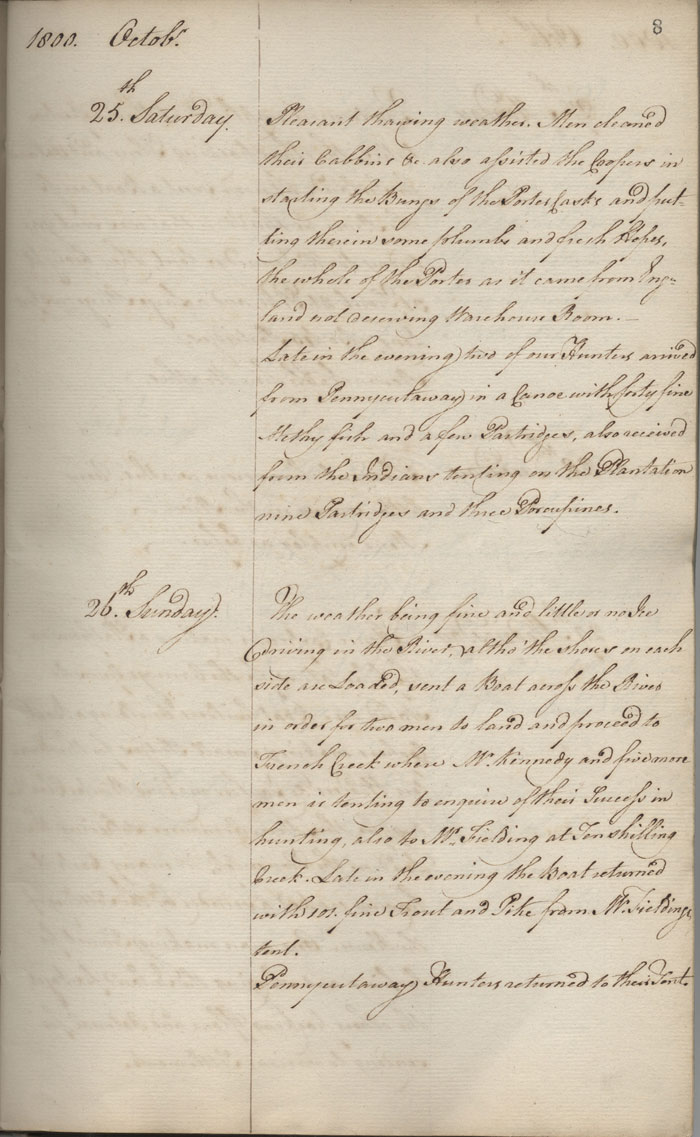 8
1800. Octobr.
25.th Saturday.
Pleasant thawing weather. Men cleaned
their Cabbins &c. also assisted the Coopers in
starting the Bungs of the Porter Casks and put-
ting therein some plumbs and fresh Hopes,
the whole of the Porter as it came from Eng-
land not deserving Warehouse Room.—
Late in the evening two of our Hunters arrived
from Pennycutaway in a Canoe with forty fine
Methy fish and a few Partridges, also received
from the Indians tenting on the Plantation
nine Partridges and three Porcupines.
26.th Sunday.
The weather being fine and little or no Ice
driving in the River, altho' the shores on each
side are Loaded, sent a Boat across the River
in order for two men to land and proceed to
French Creek where Mr. Kennedy and five more
men is tenting to enquire of their Success in
hunting, also to Mr. Fielding at Tenshilling
Creek. Late in the evening the Boat returned
with 101. fine Trout and Pike from Mr. Fieldings
tent.
Pennycutaway Hunters returned to their Tent.